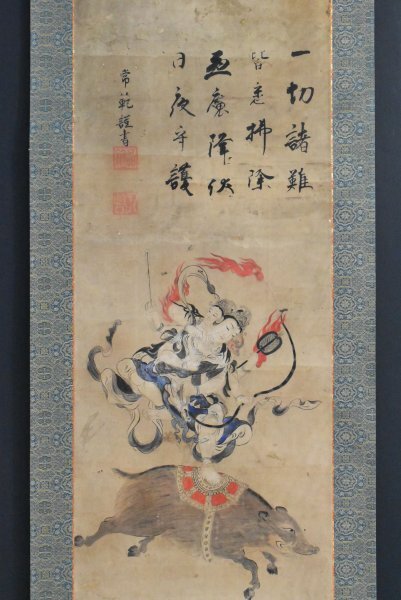 一切諸難
皆悉拂除
悪魔降伏
日夜守護
常範謹書